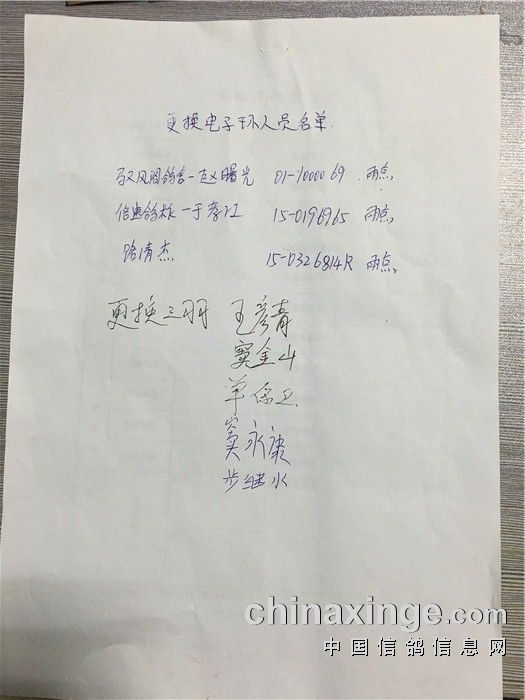 更换电子环人员名单
驭风阁鸽舍-赵曙光 01-1000069 两点
信鸿鸽校-于孝江 15-0196965 两点
路清杰 15-0326814R 两点
更换三羽 王彦青
窦金山
单保卫
窦永康
步继水
chinaxinge.com
中国信鸽信息网